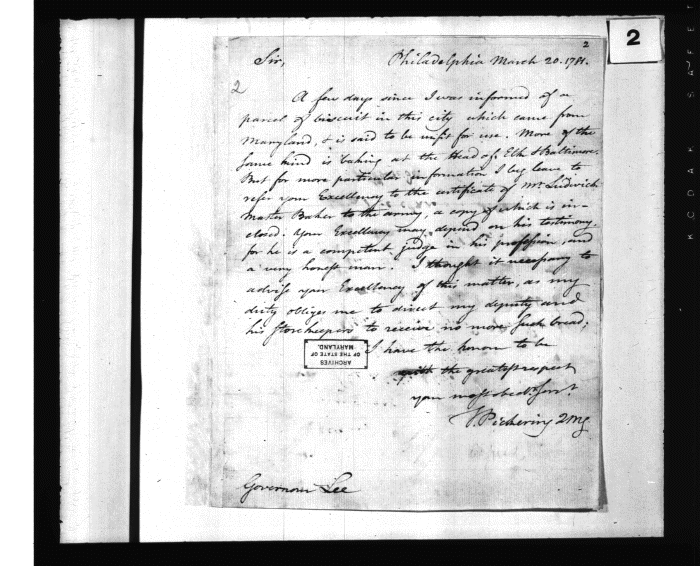 2
2
Sir, Philadelphia March 20. 1781.
2
A few days since I was informed of a
parcel of biscuit in this city which came from
Maryland, & is said to be unfit for use. More of the
same kind is baking at the Head of Elk & Baltimore.
But for more particular information I beg leave to
refer your Excellency to the certificate of Mr. Ludwick
Master Baker to the army, a copy of which is in-
closed. Your Excellency may depend on his testimony,
for he is a competent judge in his profession, and
a very honest man. I thought it necessary to
advise your Excellency of this matter, as my
duty obliges me to direct my deputy and
his storekeepers to receive no more such bread;
I have the honor to be
with the greatest respect
your most obedt. servt.
T. Pickering QMG
ARCHIVES
OF THE STATE OF
MARYLAND.
Governour Lee
KODAK SAFET